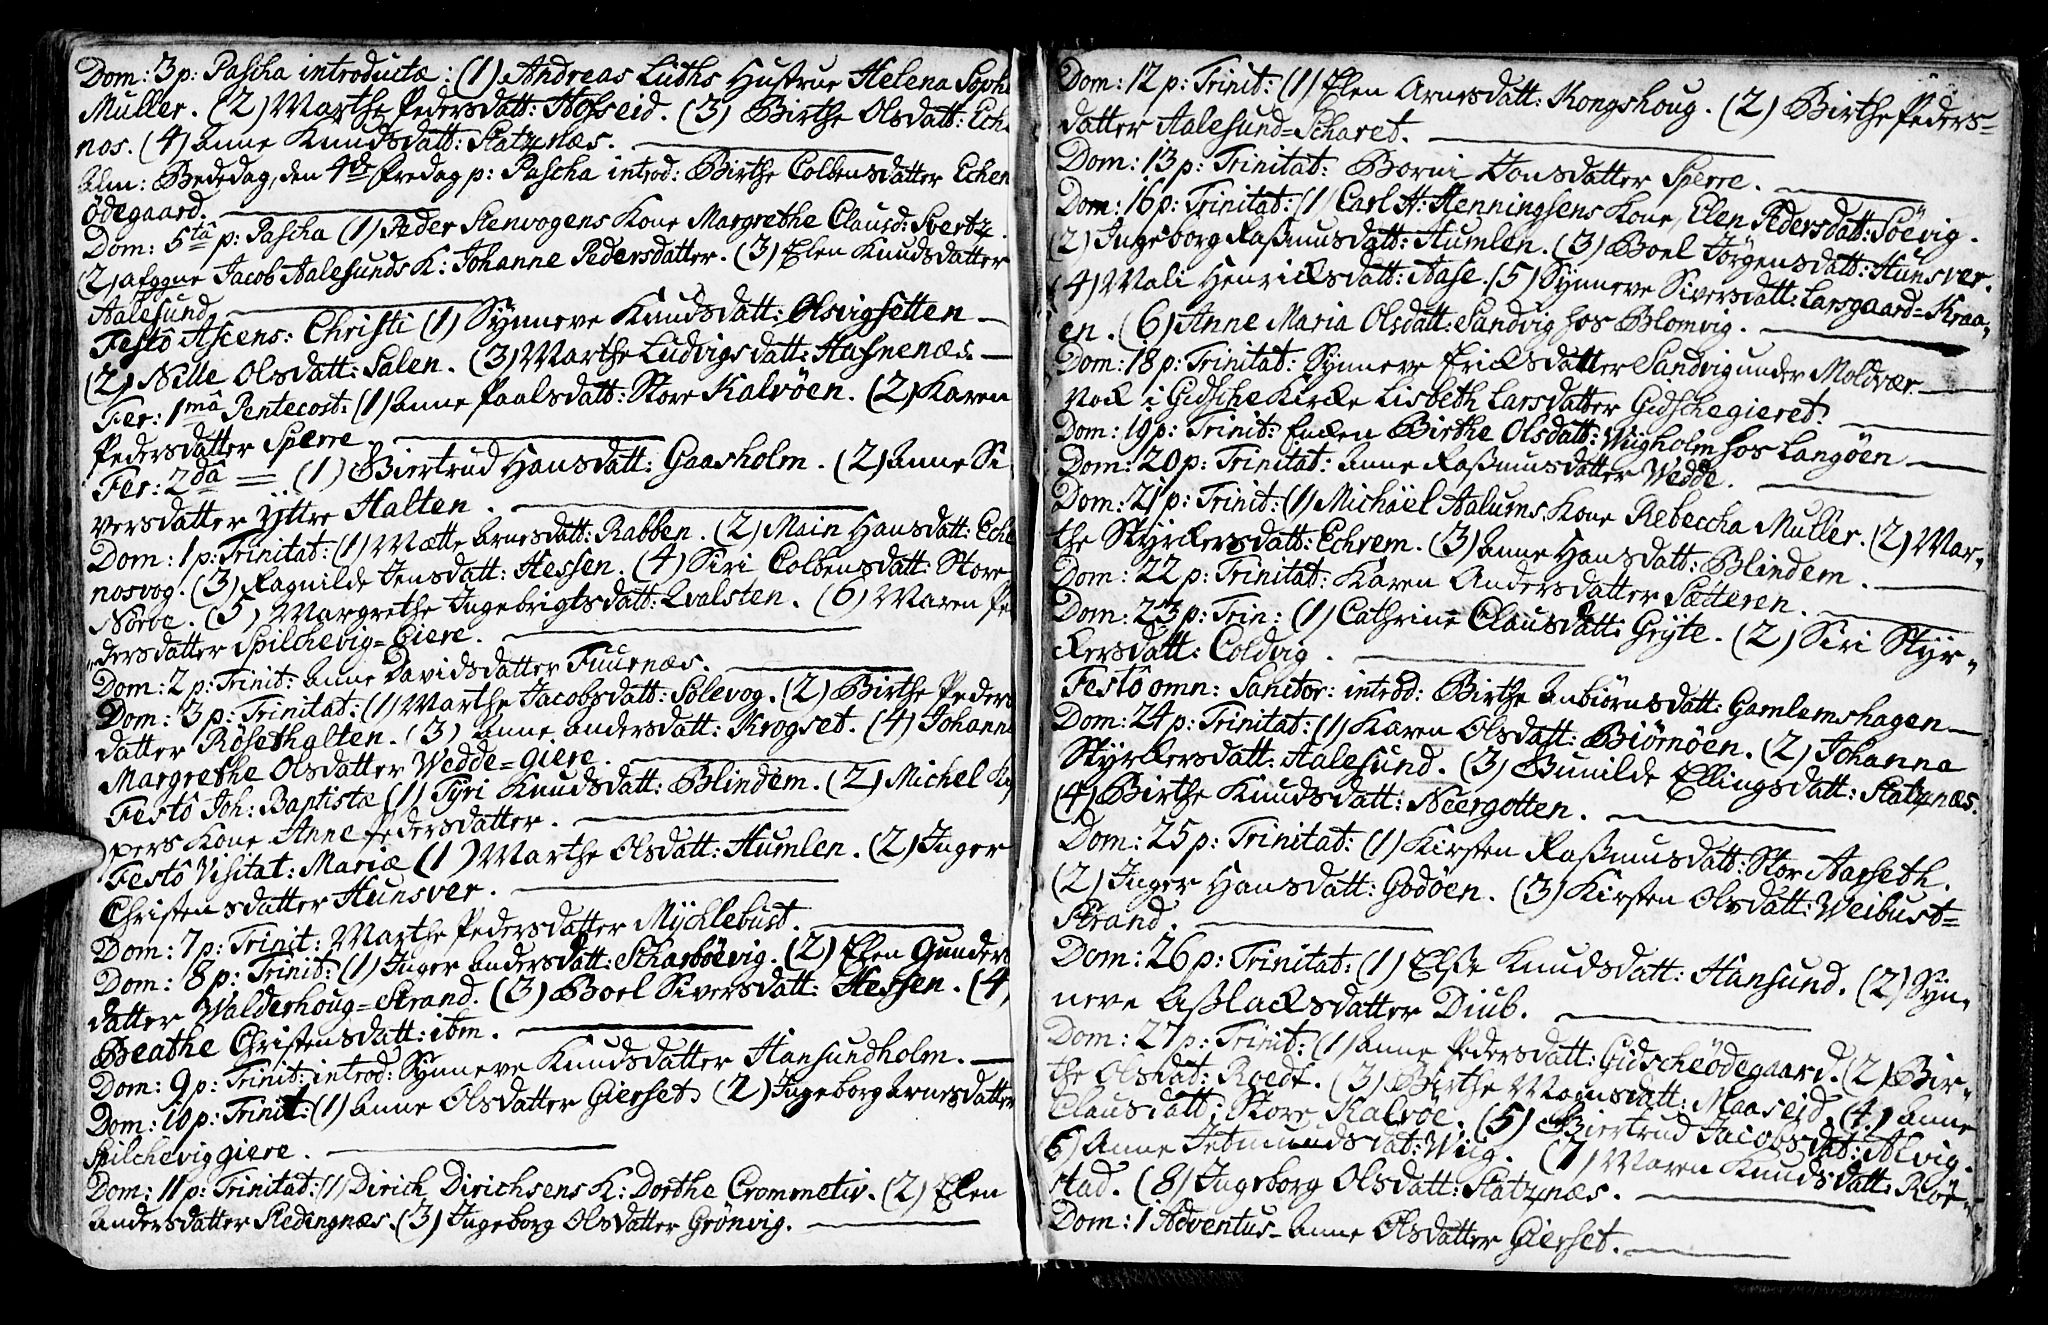 Dom: 3 p: Pascha introductæ: (1) Andreas Lüths Hustrue Helena Soph
Muller. (2) Marthe Pedersdatt: Hofseid. (3) Birthe Olsdatt: Ech
nos. (4) Anne Knudsdatt: Statznæs.
Alm: Bededag, den 4de Fredag p: Pascha introd: Birthe Colbensdatter Echen
Ødegaard.
Dom: 5ta p: Pascha (1) Peder Stenvogens Kone Margrethe Clausd: Svertz.
(2) afggne Jacob Aalesunds K: Johanne Pedersdatter. (3) Elen Knudsdatter
Aalesund.
Festô Ascens: Christi (1) Synneve Knudsdatt: Olsvigsetten
(2) Nille Olsdatt: Salen. (3) Marthe Ludvigsdatt: Hafnenæs.
Fer: 1mâ Pentecost: (1) Anne Paalsdatt: Store Kalvöen. (2) Karen
Pedersdatter Sperre.
Fer: 2dâ = (1) Giertrud Hansdatt: Gaasholm. (2) Anne Si
versdatter Yttre Halten.
Dom: 1 p: Trinitat: (1) Mætte Arnesdatt: Rabben. (2) Main Hansdatt: Eche
nosvog. (3) Ragnilde Jensdatt: Hessen. (4) Siri Colbensdatt: Store
Nörve. (5) Margrethe Ingebrigtsdatt: Qvalsten. (6) Maren Pe
dersdatter Spilchevig=Giere.
Dom: 2 p: Trinit: Anne Davidsdatter Tuurnæs.
Dom: 3 p: Trinitat: (1) Marthe Jacobsdatt: Solevog. (2) Birthe Peders
datter Rösetholten. (3) Anne Andersdatt: Krogset. (4) Johann
Margrethe Olsdatter Wedde=giere.
Festô Joh: Baptistæ (1) Tyri Knudsdatt: Blindem. (2) Michel Kas
pers Kone Anne Pedersdatter.
Festô Visitat: Mariæ (1) Marthe Olsdatt: Humlen. (2) Inger
Christensdatter Hunsver.
Dom: 7 p: Trinit: Marthe Pedersdatter Mychlebust.
Dom: 8 p: Trinit: (1) Inger Andersdatt: Scharbövig. (2) Elen Gunders
datter Walderhoug=Strand. (3) Boel Siversdatt: Hessen. (4)
Beathe Christensdatt: ibm.
Dom: 9 p: Trinit: introd: Synneve Knudsdatter Hansundholm.
Dom: 10 p: Trinit: (1) Anne Olsdatter Gierset. (2) Ingeborg Arnesdatter
Spilcheviggiere.
Dom: 11 p: Trinitat: (1) Dirich Dirichsens K: Dorthe Crommetiv. (2) Elen
Andersdatter Stedingnæs. (3) Ingeborg Olsdatter Grönvig.
Dom: 12 p: Trinit: (1) Elen Arnesdatt: Kongshoug. (2) Birthe Peders=
datter Aalesund=Scharet.
Dom: 13 p: Trinitat: Borni Jonsdatter Sperre.
Dom: 16 p: Trinitat: (1) Carl H: Henningsens Kone, Elen Pedersdatt: Söevig.
(2) Ingeborg Rasmusdatt: Humlen. (3) Boel Jörgensdatt: Hunsver.
(4) Mali Henricksdatt: Aase. (5) Synneve Siversdatt: Larsgaard=Kraa=
en. (6) Anne Maria Olsdatt: Sandvig hos Blomvig.
Dom: 18 p: Trinitat: Synneve Ericksdatter Sandvig under Moldvær.
Nock i Gidsche Kircke Lisbeth Larsdatter Gidschegieret.
Dom: 19 p: Trinit: Encken Birthe Olsdatt: Wiigholm hos Langöen
Dom: 20 p: Trinitat: Anne Rasmusdatter Wedde.
Dom: 21 p: Trinit: (1) Michäel Aalums Kone Rebeccha Muller. (2) Mar=
the Styrckersdatt: Echrem. (3) Anne Hansdatt: Blindem.
Dom: 22 p: Trinitat: Karen Andersdatter Sætteren.
Dom: 23 p: Trin: (1) Cathrine Clausdatt: Gryte. (2) Siri Styr=
ckersdatt: Coldvig.
Festô omn: Sanctor: introd: Birthe Anbiörnsdatt: Gamlemshagen
Dom: 24 p: Trinitat: (1) Karen Olsdatt: Biörnöen. (2) Johanna
Styrckersdatt: Aalesund. (3) Gunilde Ellingsdatt: Statznæs.
(4) Birthe Knudsdatt: Neergotten.
Dom: 25 p: Trinitat: (1) Kirsten Rasmusdatt: Stor Aarseth.
(2) Inger Hansdatt: Godöen. (3) Kirsten Olsdatt: Weibust=
Strand.
Dom: 26 p: Trinitat: (1) Else Knudsdatt: Hansund. (2) Syn=
neve Aslacksdatter Diub.
Dom: 27 p: Trinit: (1) Anne Pedersdatt: Gidscheödegaard. (2) Bir=
the Olsdat: Roedt. (3) Birthe Monsdatt: Maaseid. (4) Anne
Clausdatt: Store Kalvöe. (5) Giertrud Jacobsdat: Alvig.
6) Anne Jetmundsdat: Wiig. (7) Maren Knudsdatt: Röe=
stad. (8) Ingeborg Olsdatt: Statznæs.
Dom: 1 Adventus Anne Olsdatter Gierset.